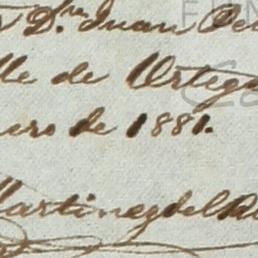 Dn Juan
lle de Ortega
nero de 1881.
Martinez del R